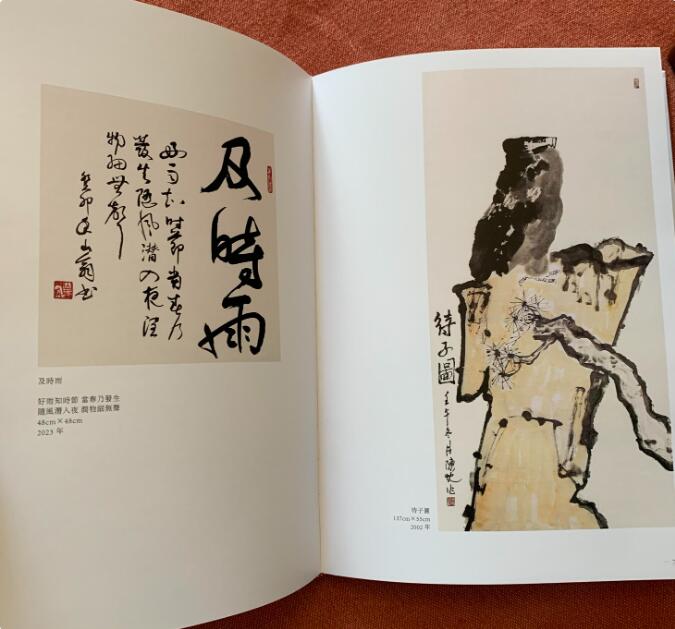 及時雨
好雨知時節當春乃
發生隨風潛入夜潤
物細無聲
癸卯年山翁书
及時雨
好雨知時節 當春乃發生
隨風潛入夜 潤物細無聲
48cm×48cm
2023 年
待子圖
壬午冬月
待子圖
137cm×55cm
2002 年